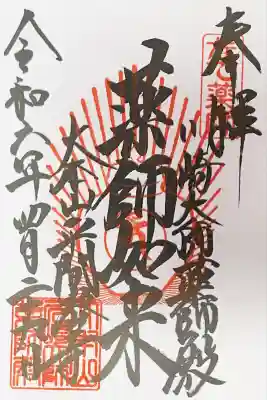 奉拝
川崎大師薬師殿
薬師如来
大本山平間寺
令和六年四月二十一日